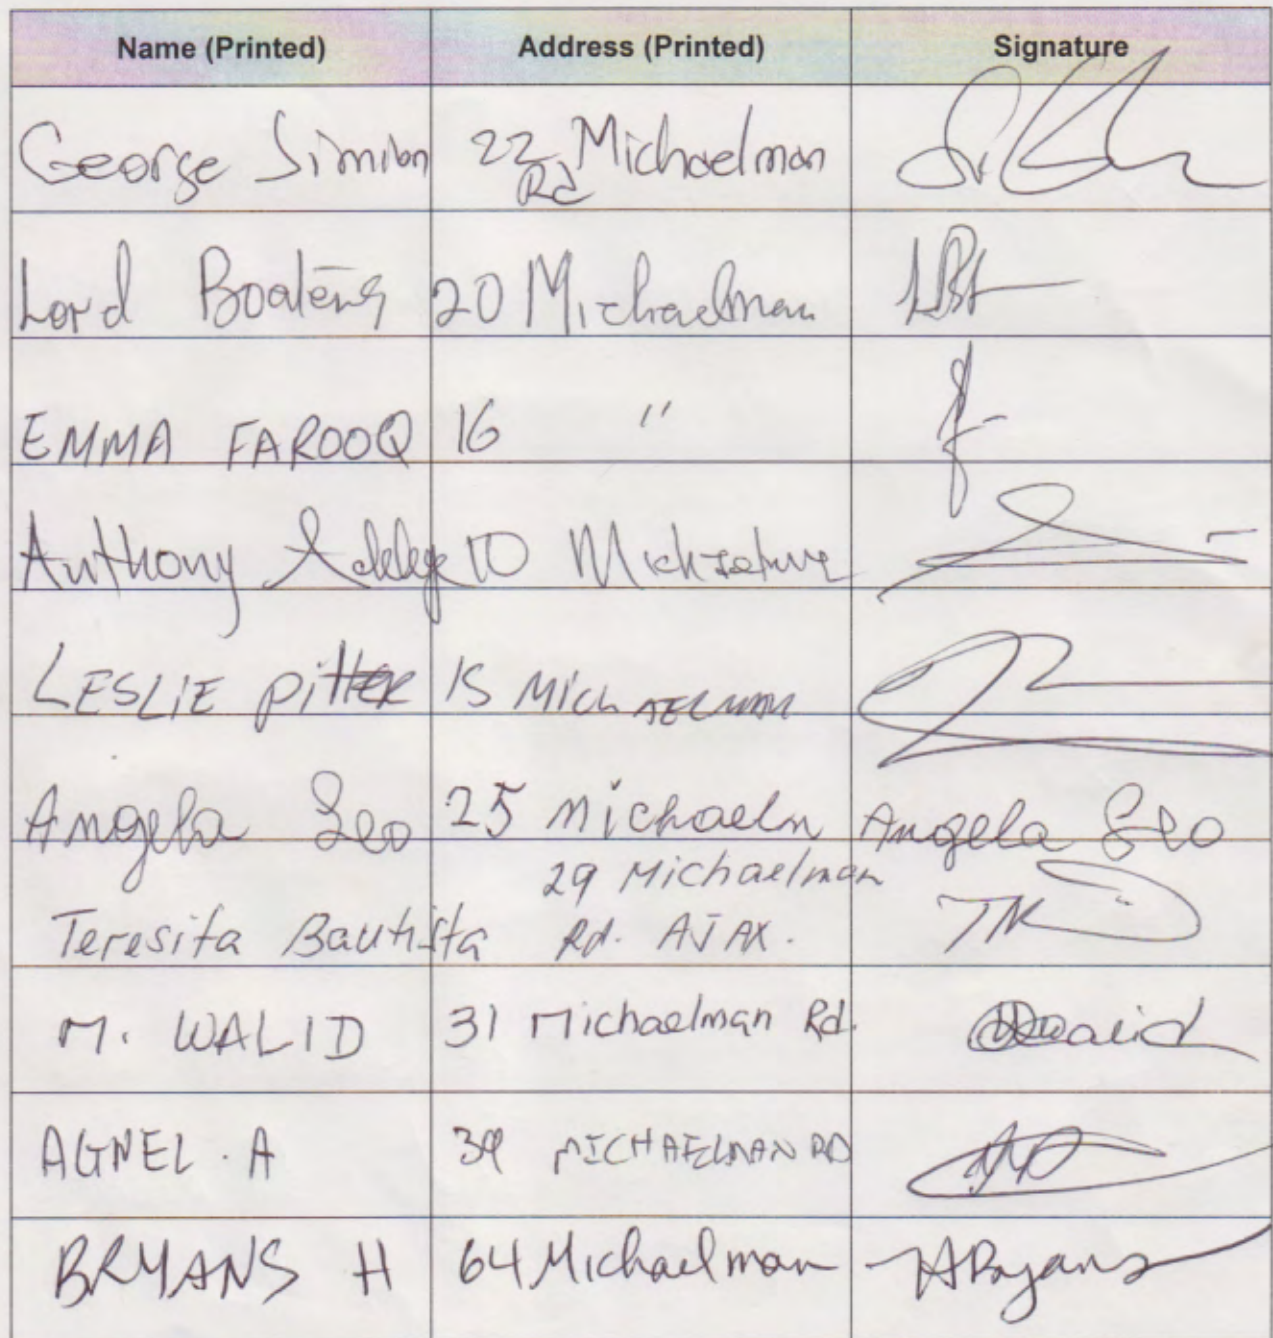 Name (Printed) Address (Printed) Signature
George Simion 22 Michaelman
Rd
Lord Boateng 20 Michaelman
EMMA FAROOQ 16 "
Anthony 10
LESLIE Pitter 15 MICHAELMAN
Angela Leo 25 Michaelm Angela Leo
29 Michaelman
Teresita Bautista Rd. AJAX.
M. WALID 31 Michaelman Rd. Walid
AGNEL . A 39 MICHAELMAN RD
BRYANS H 64 Michaelman HBryans